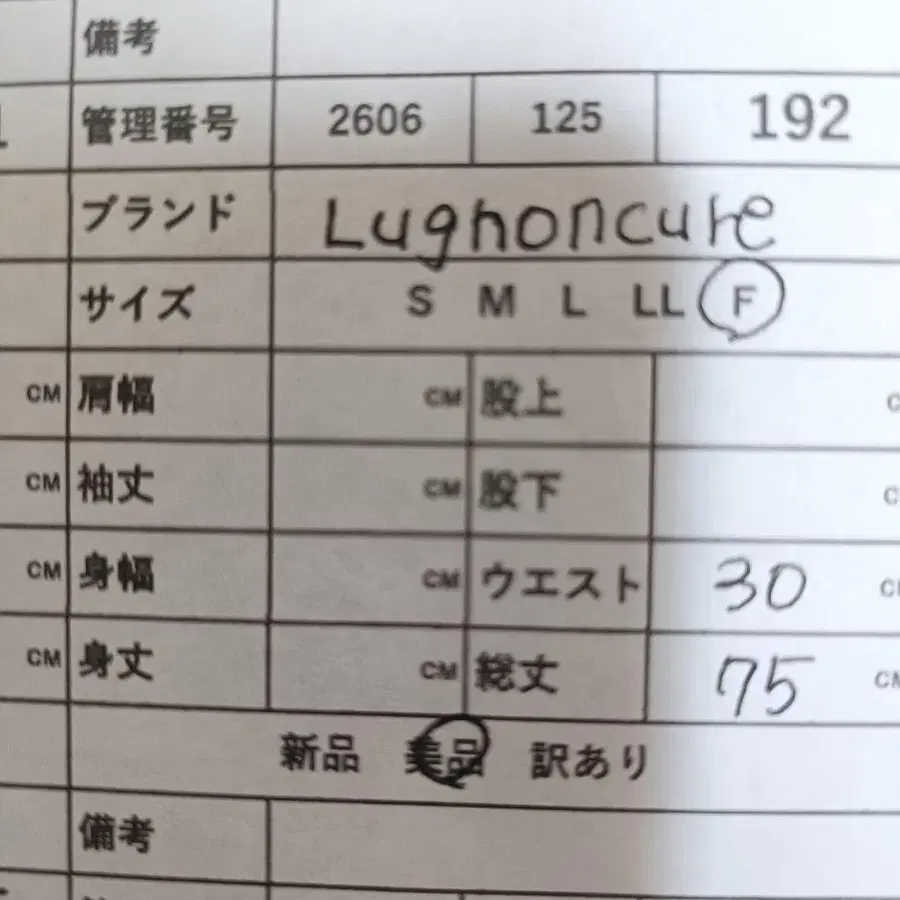 備考
管理番号 2606 125 192
ブランド Lughoncure
サイズ S M L LL F
CM 肩幅 CM 股上
CM 袖丈 CM 股下
CM 身幅 CM ウエスト 30
CM 身丈 CM 総丈 75 CM
新品 美品 訳あり
備考